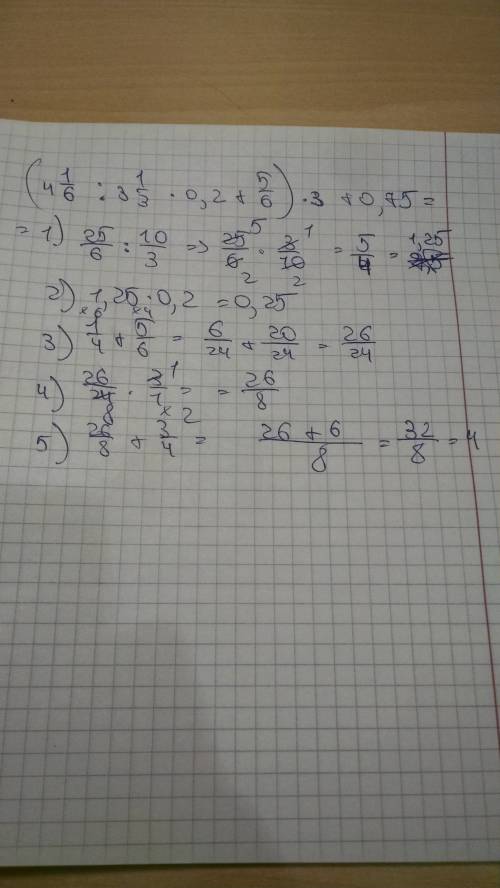 (4 1/6 : 3 1/3 · 0,2 + 5/6) · 3 + 0,75 =
= 1) 25/6 : 10/3 => 25/6 5 2 · 3/10 1 2 = 5/4 = 1,25
2) 1,25 · 0,2 = 0,25
3) 1/4 ×6 + 5/6 ×4 = 6/24 + 20/24 = 26/24
4) 26/24 8 · 3/1 1 = = 26/8
5) 26/8 + 3/4 ×2 = 26 + 6/8 = 32/8 = 4